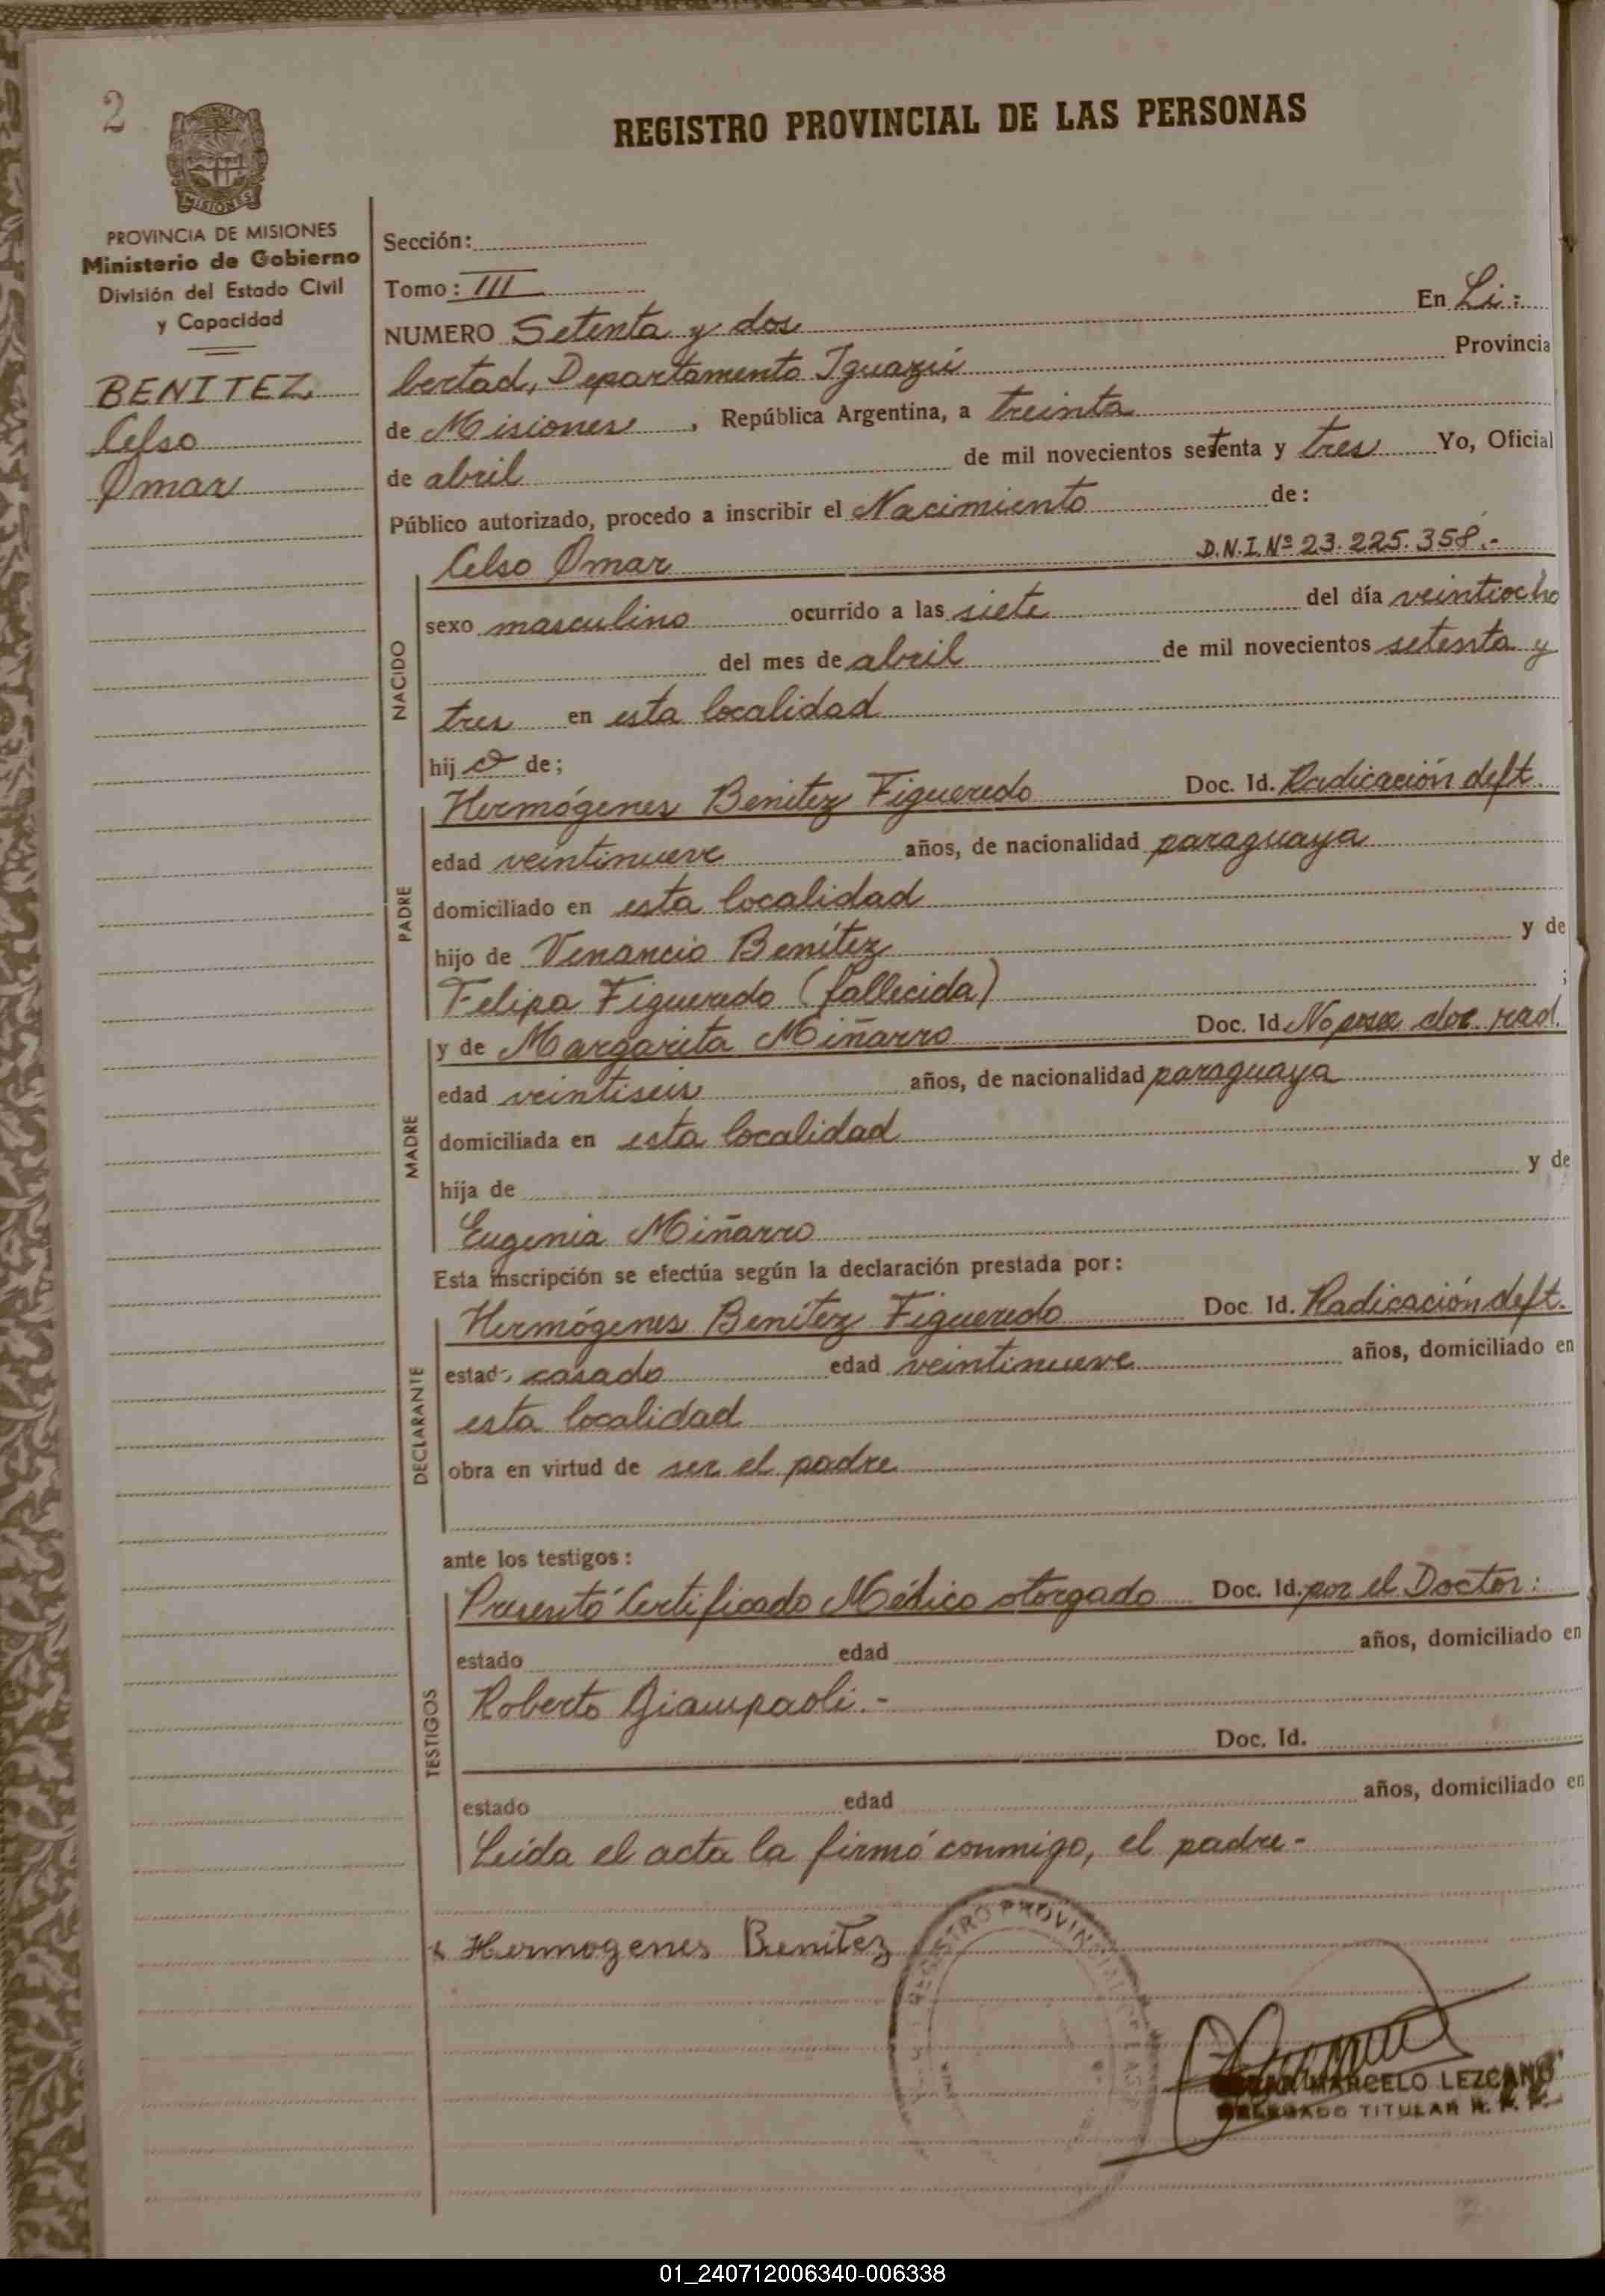 2
REGISTRO PROVINCIAL DE LAS PERSONAS
MISIONES
PROVINCIA DE MISIONES
Ministerio de Gobierno
División del Estado Civil
y Capacidad
BENITEZ
Celso
Omar
Sección:
Tomo: III
NUMERO Setenta y dos En Li-
bertad, Departamento Iguazú Provincia
de Misiones, República Argentina, a treinta
de abril de mil novecientos setenta y tres Yo, Oficial
Público autorizado, procedo a inscribir el Nacimiento de:
NACIDO
Celso Omar D.N.I. Nº 23.225.358.-
sexo masculino ocurrido a las siete del día veintiocho
del mes de abril de mil novecientos setenta y
tres en esta localidad
hijo de;
PADRE
Hermógenes Benitez Figueredo Doc. Id. Radicación deft.
edad veintinueve años, de nacionalidad paraguaya
domiciliado en esta localidad
hijo de Venancio Benítez y de
Felipa Figueredo (fallecida) ;
MADRE
y de Margarita Miñarro Doc. Id No posee doc. rad.
edad veintiseis años, de nacionalidad paraguaya
domiciliada en esta localidad
hija de y de
Eugenia Miñarro
Esta inscripción se efectúa según la declaración prestada por:
DECLARANTE
Hermógenes Benítez Figueredo Doc. Id. Radicación deft.
estado casado edad veintinueve años, domiciliado en
esta localidad
obra en virtud de ser el padre
ante los testigos:
TESTIGOS
Presentó Certificado Médico otorgado Doc. Id. por el Doctor:
estado edad años, domiciliado en
Roberto Giampaoli.-
Doc. Id.
estado edad años, domiciliado en
Leída el acta la firmó conmigo, el padre-
Hermogenes Benitez
REGISTRO PROVINCIAL DE LAS
MARCELO LEZCANO
DELEGADO TITULAR R. P. P.
01_240712006340-006338